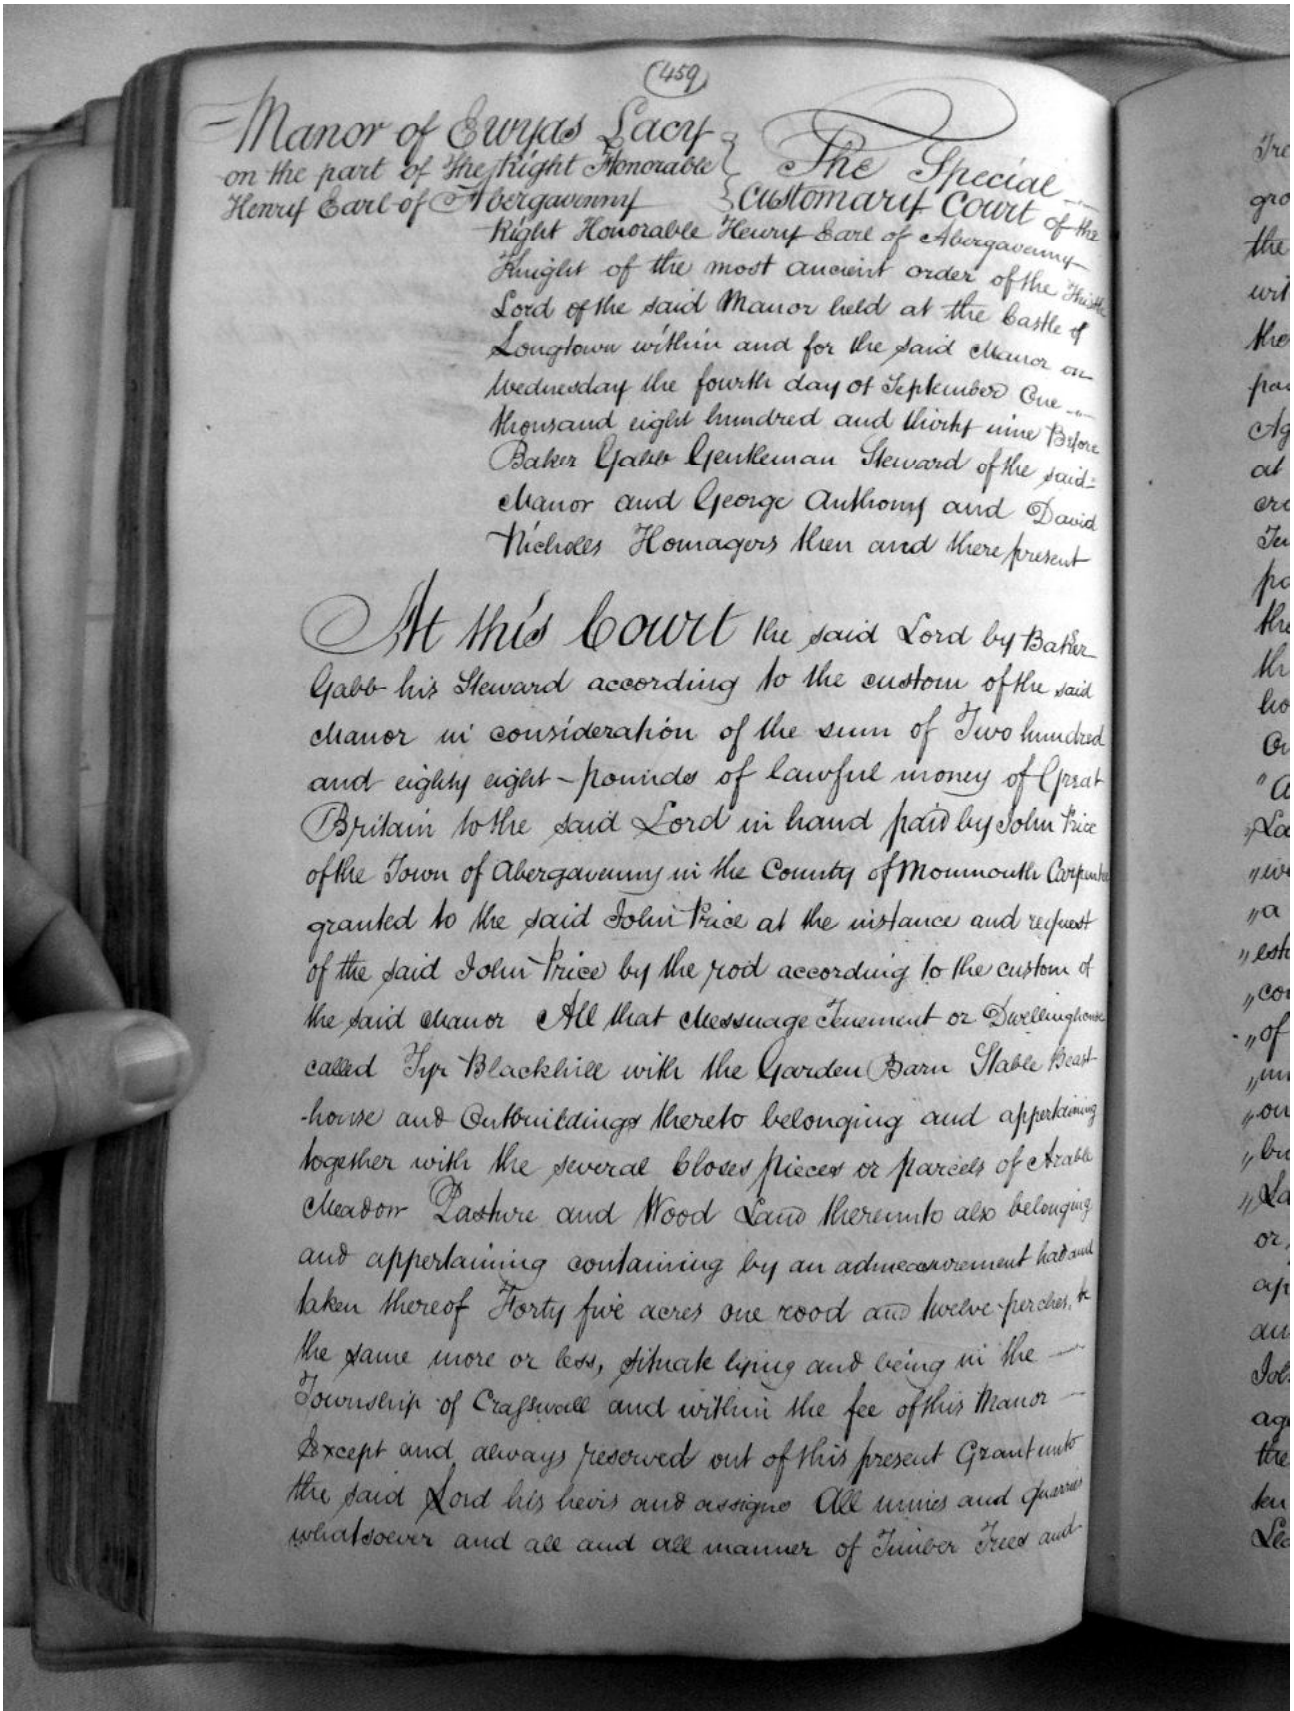 (459)
Manor of Ewyas Lacy
on the part of The Right Honorable
Henry Earl of Abergavenny
The Special
Customary Court of the
Right Honorable Henry Earl of Abergavenny
Knight of the most ancient order of the Thistle
Lord of the said Manor held at the Castle of
Longtown within and for the said Manor on
Wednesday the fourth day of September One
thousand eight hundred and thirty nine Before
Baker Gabb Gentleman Steward of the said
Manor and George Anthony and David
Nicholls Homagers then and there present
At this Court the said Lord by Baker
Gabb his Steward according to the custom of the said
Manor in consideration of the sum of Two hundred
and eighty eight pounds of lawful money of Great
Britain to the said Lord in hand paid by John Price
of the Town of Abergavenny in the County of Monmouth Carpenter
granted to the said John Price at the instance and request
of the said John Price by the rod according to the custom of
the said Manor All that Messuage Tenement or Dwellinghouse
called Tyr Blackhill with the Garden Barn Stable Beast
-house and Outbuildings thereto belonging and appertaining
together with the several Closes pieces or parcels of Arable
Meadow Pasture and Wood Land thereunto also belonging
and appertaining containing by an admeasurement had and
taken thereof Forty five acres one rood and twelve perches, be
the same more or less, situate lying and being in the
Township of Crasswall and within the fee of this Manor
Except and always reserved out of this present Grant unto
the said Lord his heirs and assigns All mines and quarries
whatsoever and all and all manner of Timber Trees and